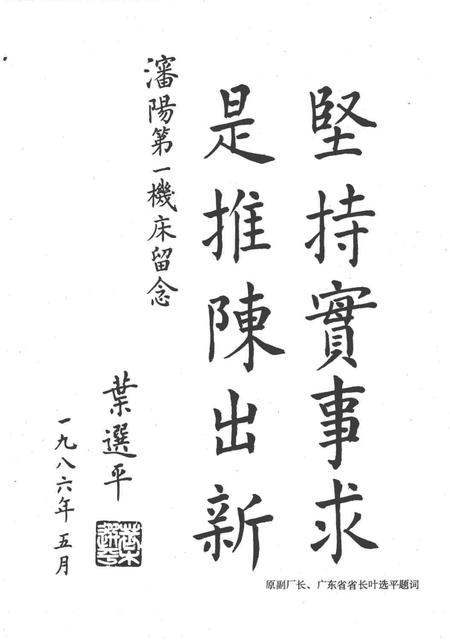 堅持實事求
是推陳出新
瀋陽第一機床留念
葉選平
一九八六年五月
葉選平
原副厂长、广东省省长叶选平题词